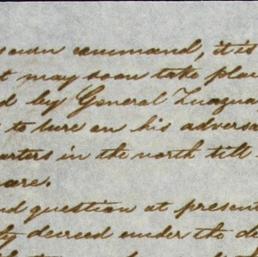 own command, it is
may soon take pla
d by General Zuagua
to bare on his adversa
arters in the north till
are.
nd question at present
ty decreed under the de